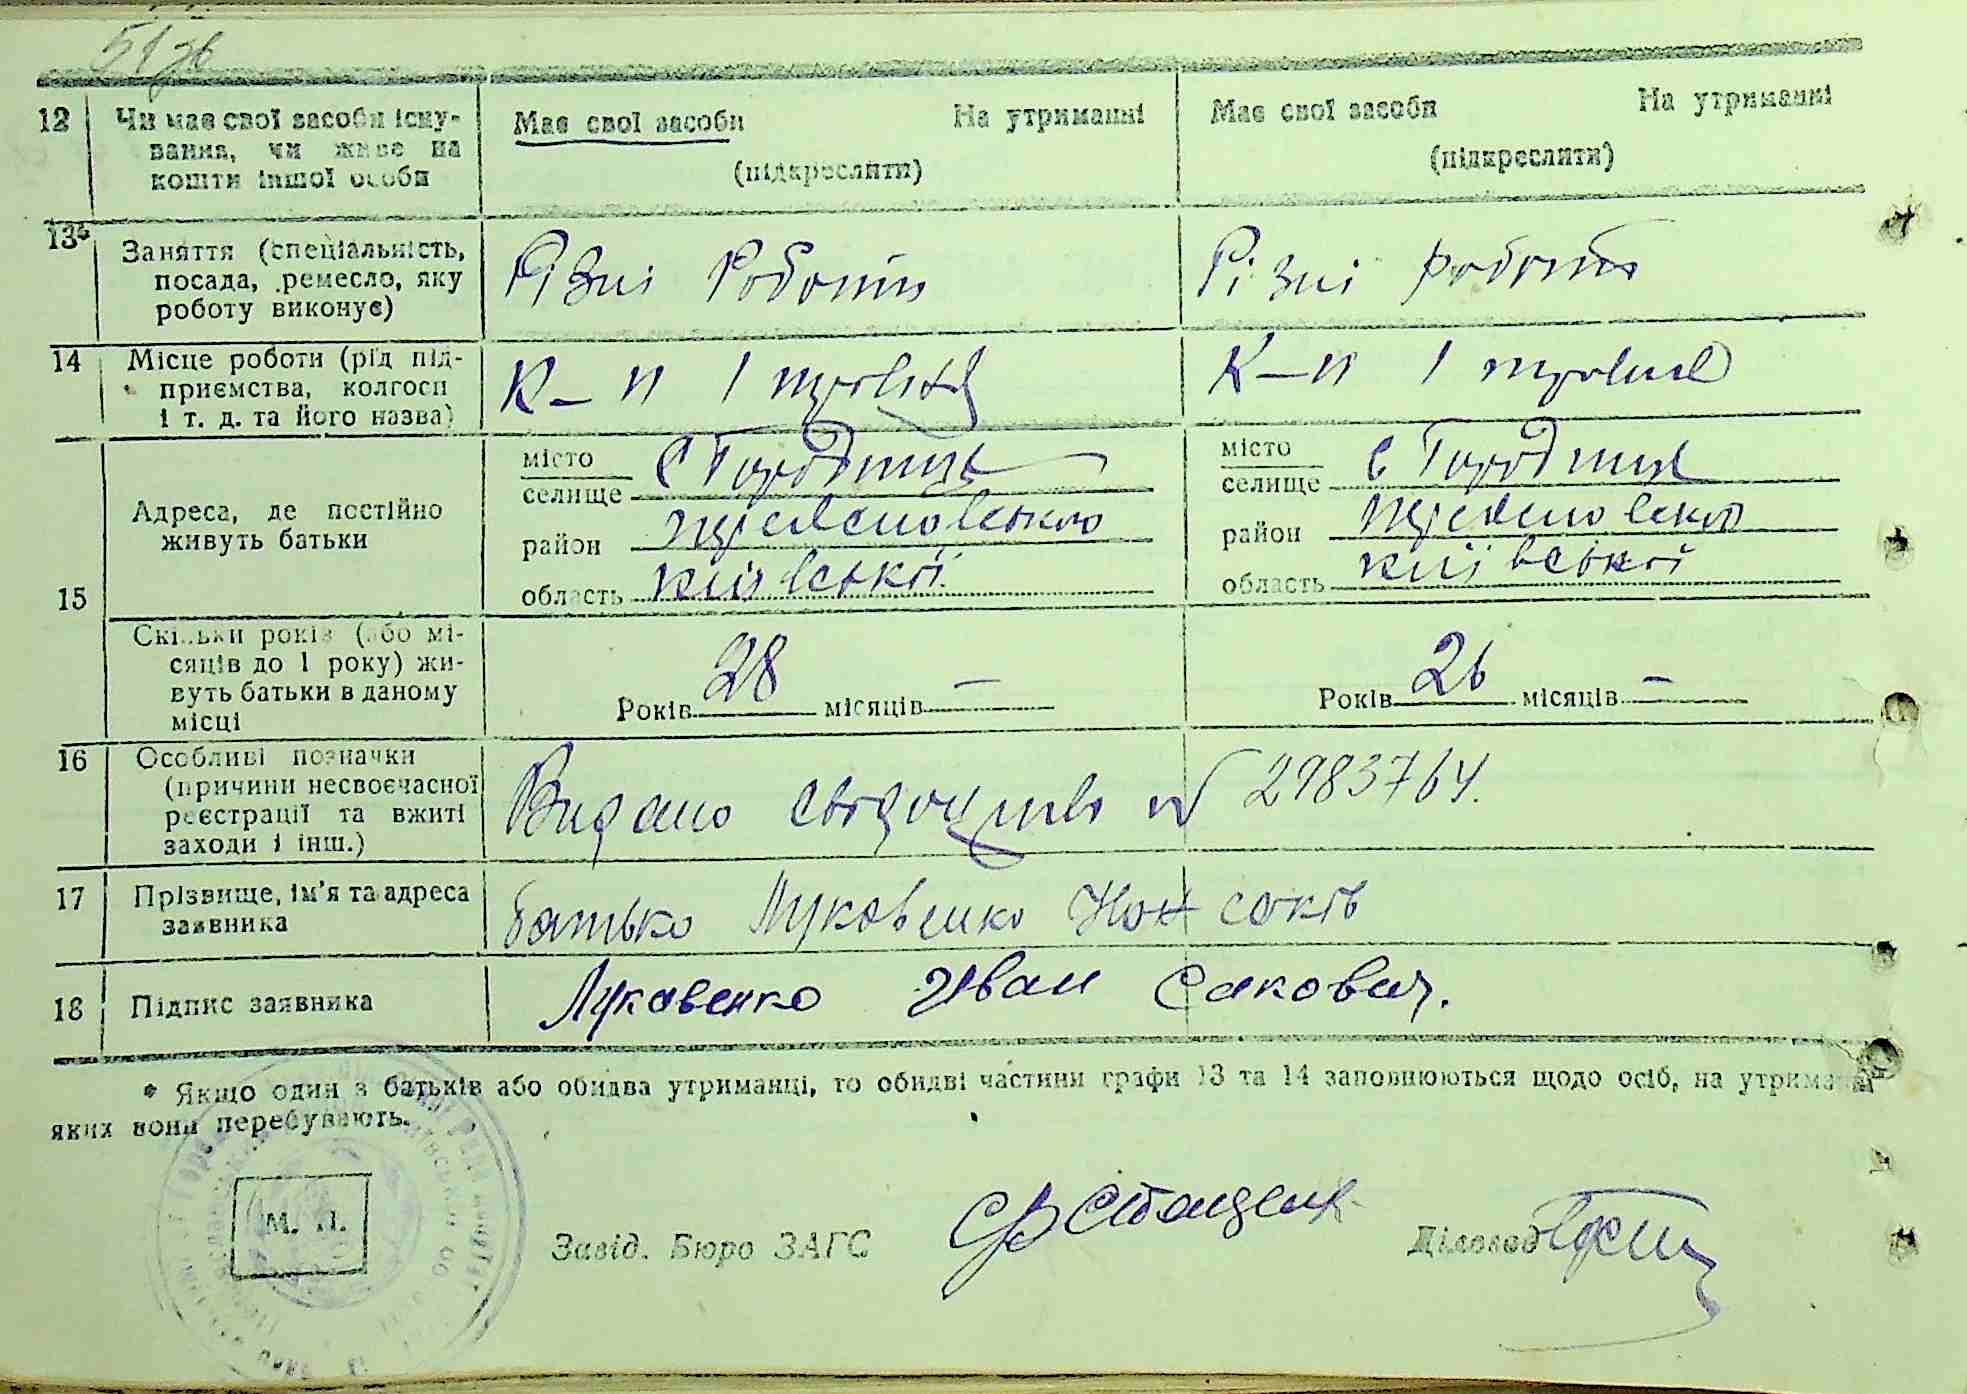 51зв
12 Чи має свої засоби існу- Має свої засоби На утриманні Має свої засоби На утриманні
вання, чи живе на (підкреслити) (підкреслити)
кошти іншої особи
13* Заняття (спеціальність, Різні Роботи Різні роботи
посада, ремесло, яку
роботу виконує)
14 Місце роботи (рід під- К-п 1 травня К-п 1 травня
приємства, колгосп
і т. д. та його назва)
15 Адреса, де постійно
живуть батьки
місто с Городище місто с Городище
селище селище
район район
область київської область київської
Скільки років (або мі-
сяців до 1 року) жи-
вуть батьки в даному Років 28 місяців — Років 26 місяців —
місці
16 Особливі позначки
(причини несвоєчасної Видано свідоцтво № 2983764.
реєстрації та вжиті
заходи і інш.)
17 Прізвище, ім'я та адреса батько Луковенко
заявника
18 Підпис заявника Лукавенко Иван Сакович.
* Якщо один з батьків або обидва утриманці, то обидві частини графи 13 та 14 заповнюються щодо осіб, на утриманні
яких вони перебувають.
М. П.
Завід. Бюро ЗАГС Діловод